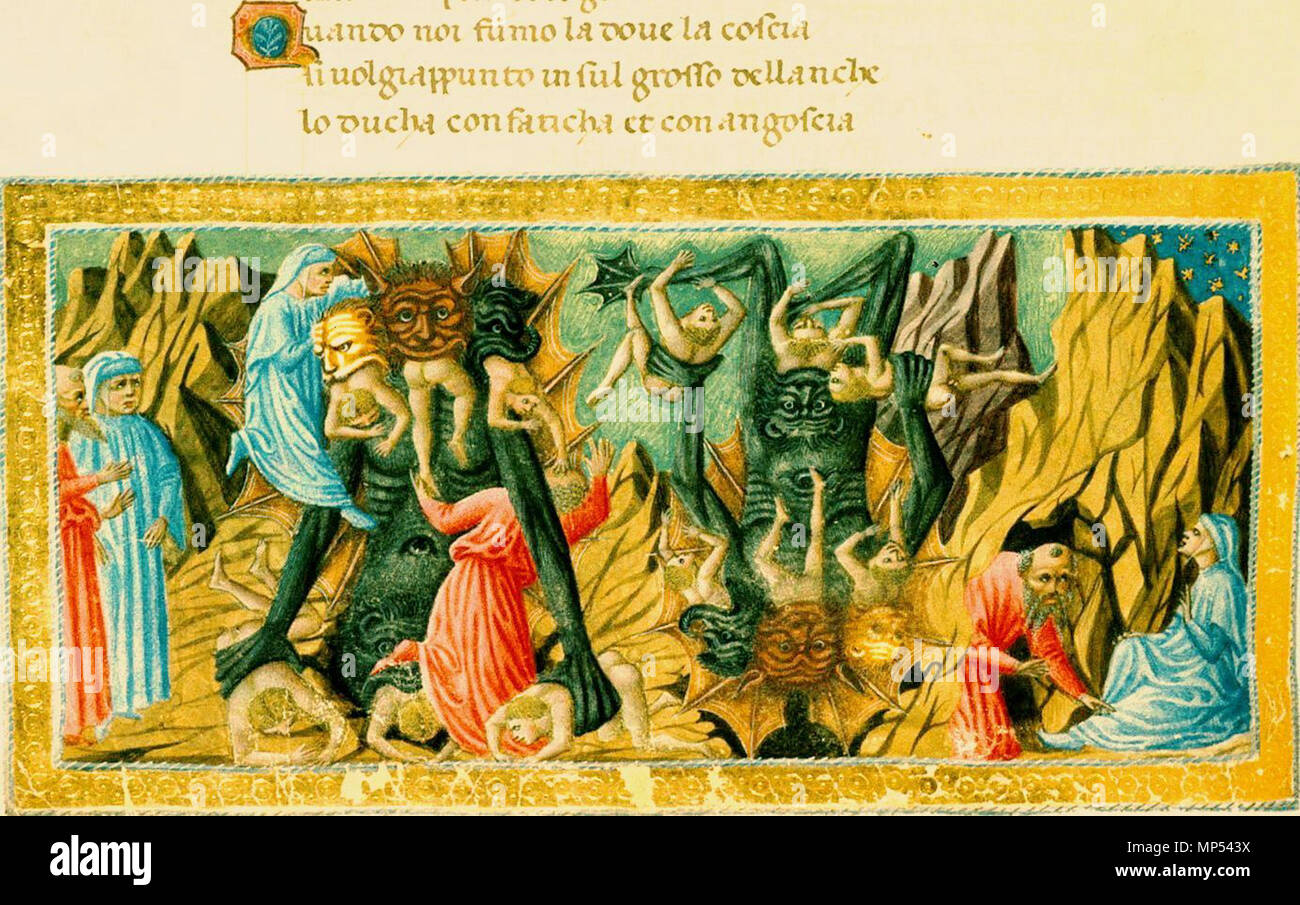 Quando noi fumo la doue la coscia
si uolgiappunto in sul grosso dellanche
lo ducha con faticha et con angoscia
alamy
Image ID: MP543X
www.alamy.com